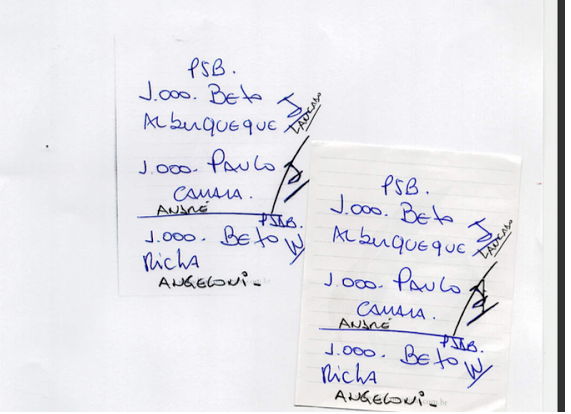 PSB.
1.000. Beto
Albuquerque
LANÇADO
1.000. PAULO
CAMARA.
ANDRÉ
PSDB.
1.000. Beto
Richa
ANGELONI-
PSB.
1.000. Beto
Albuquerque
LANÇADO
1.000. PAULO
CAMARA.
ANDRÉ
PSDB.
1.000. Beto
Richa
ANGELONI-